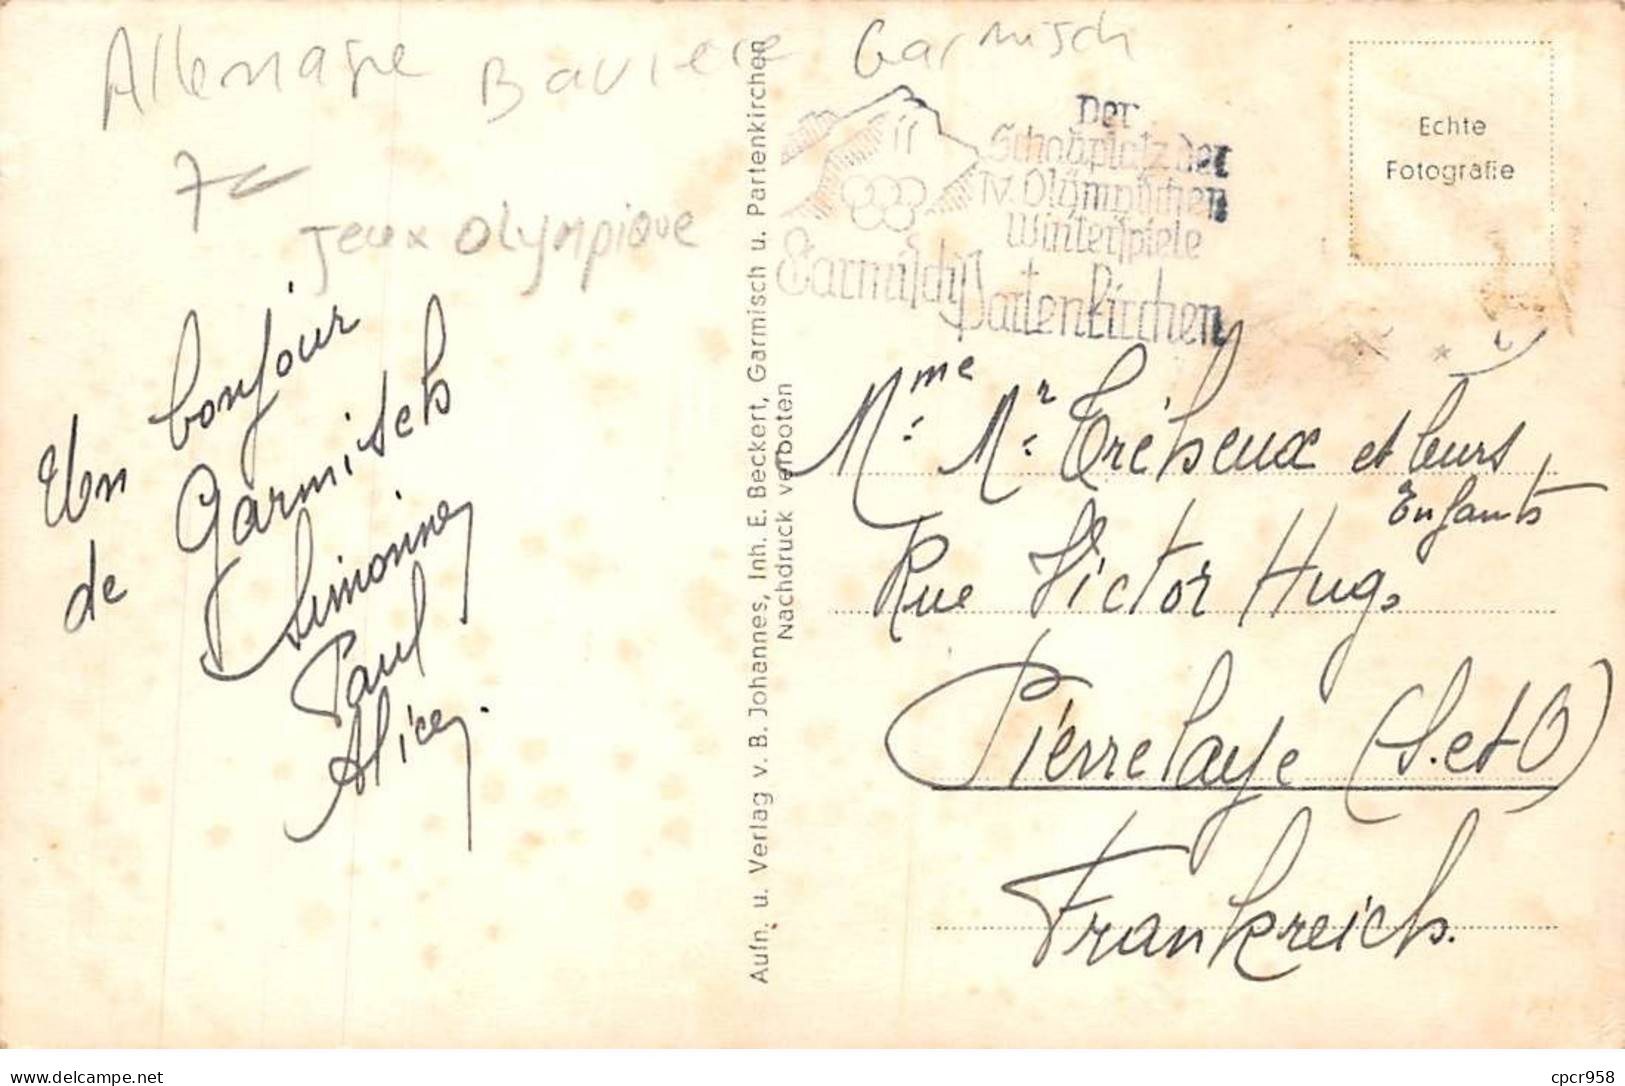 Allemagne Baviere Garmisch
7€
Jeux Olympique
Un bonjour
de Garmisch
Simonne
Paul
Alice.
Aufn. u. Verlag v. B. Johannes, Inh. E. Beckert, Garmisch u. Partenkirchen
Nachdruck verboten
Der
Schauplatz der
IV. Olympischen
Winterspiele
Garmisch Partenkirchen
Echte
Fotografie
Mme Mr Tréheux et leurs
Enfants
Rue Victor Hugo
Pierrelaye (S. et O)
Frankreich.
delcampe.net
cpcr958